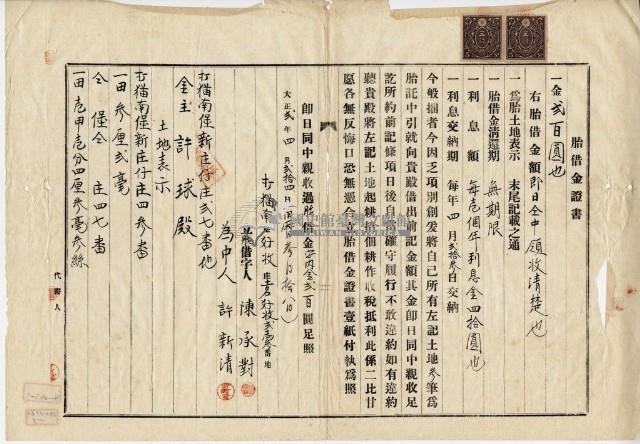 胎借金證書
一金貳百圓也
右胎借金額即日仝中領收清楚也
一為胎土地表示　末尾記載之通
一胎借金清還期　無期限
一利息額　每壱個年利息金四拾圓也
一利息交納期　每年四月貳拾參日交納
今般捆者今因乏項別創爰將自己所有左記土地參筆為
胎託中引就向貴殿借出前記金額其金即日同中親收足
訖所約前記條項日後的確守履行不敢違約如有違約
聽貴殿將左記土地起耕招佃耕作收稅抵利此係二比甘
愿各無反悔口恐無憑合立胎借金證書壹紙付執為照
即日同中親收過胎借金證內金貳百圓足照
大正貳年四月貳拾四日
打猫南堡
立胎借字人　陳承對
為中人　許新清
打猫南堡新庄仔庄貳七番地
金主　許球殿
土地表示
打猫南堡新庄仔庄四參番
一田參厘貳毫
仝堡仝庄四七番
一田壱甲壱分四厘參毫參絲
代書人